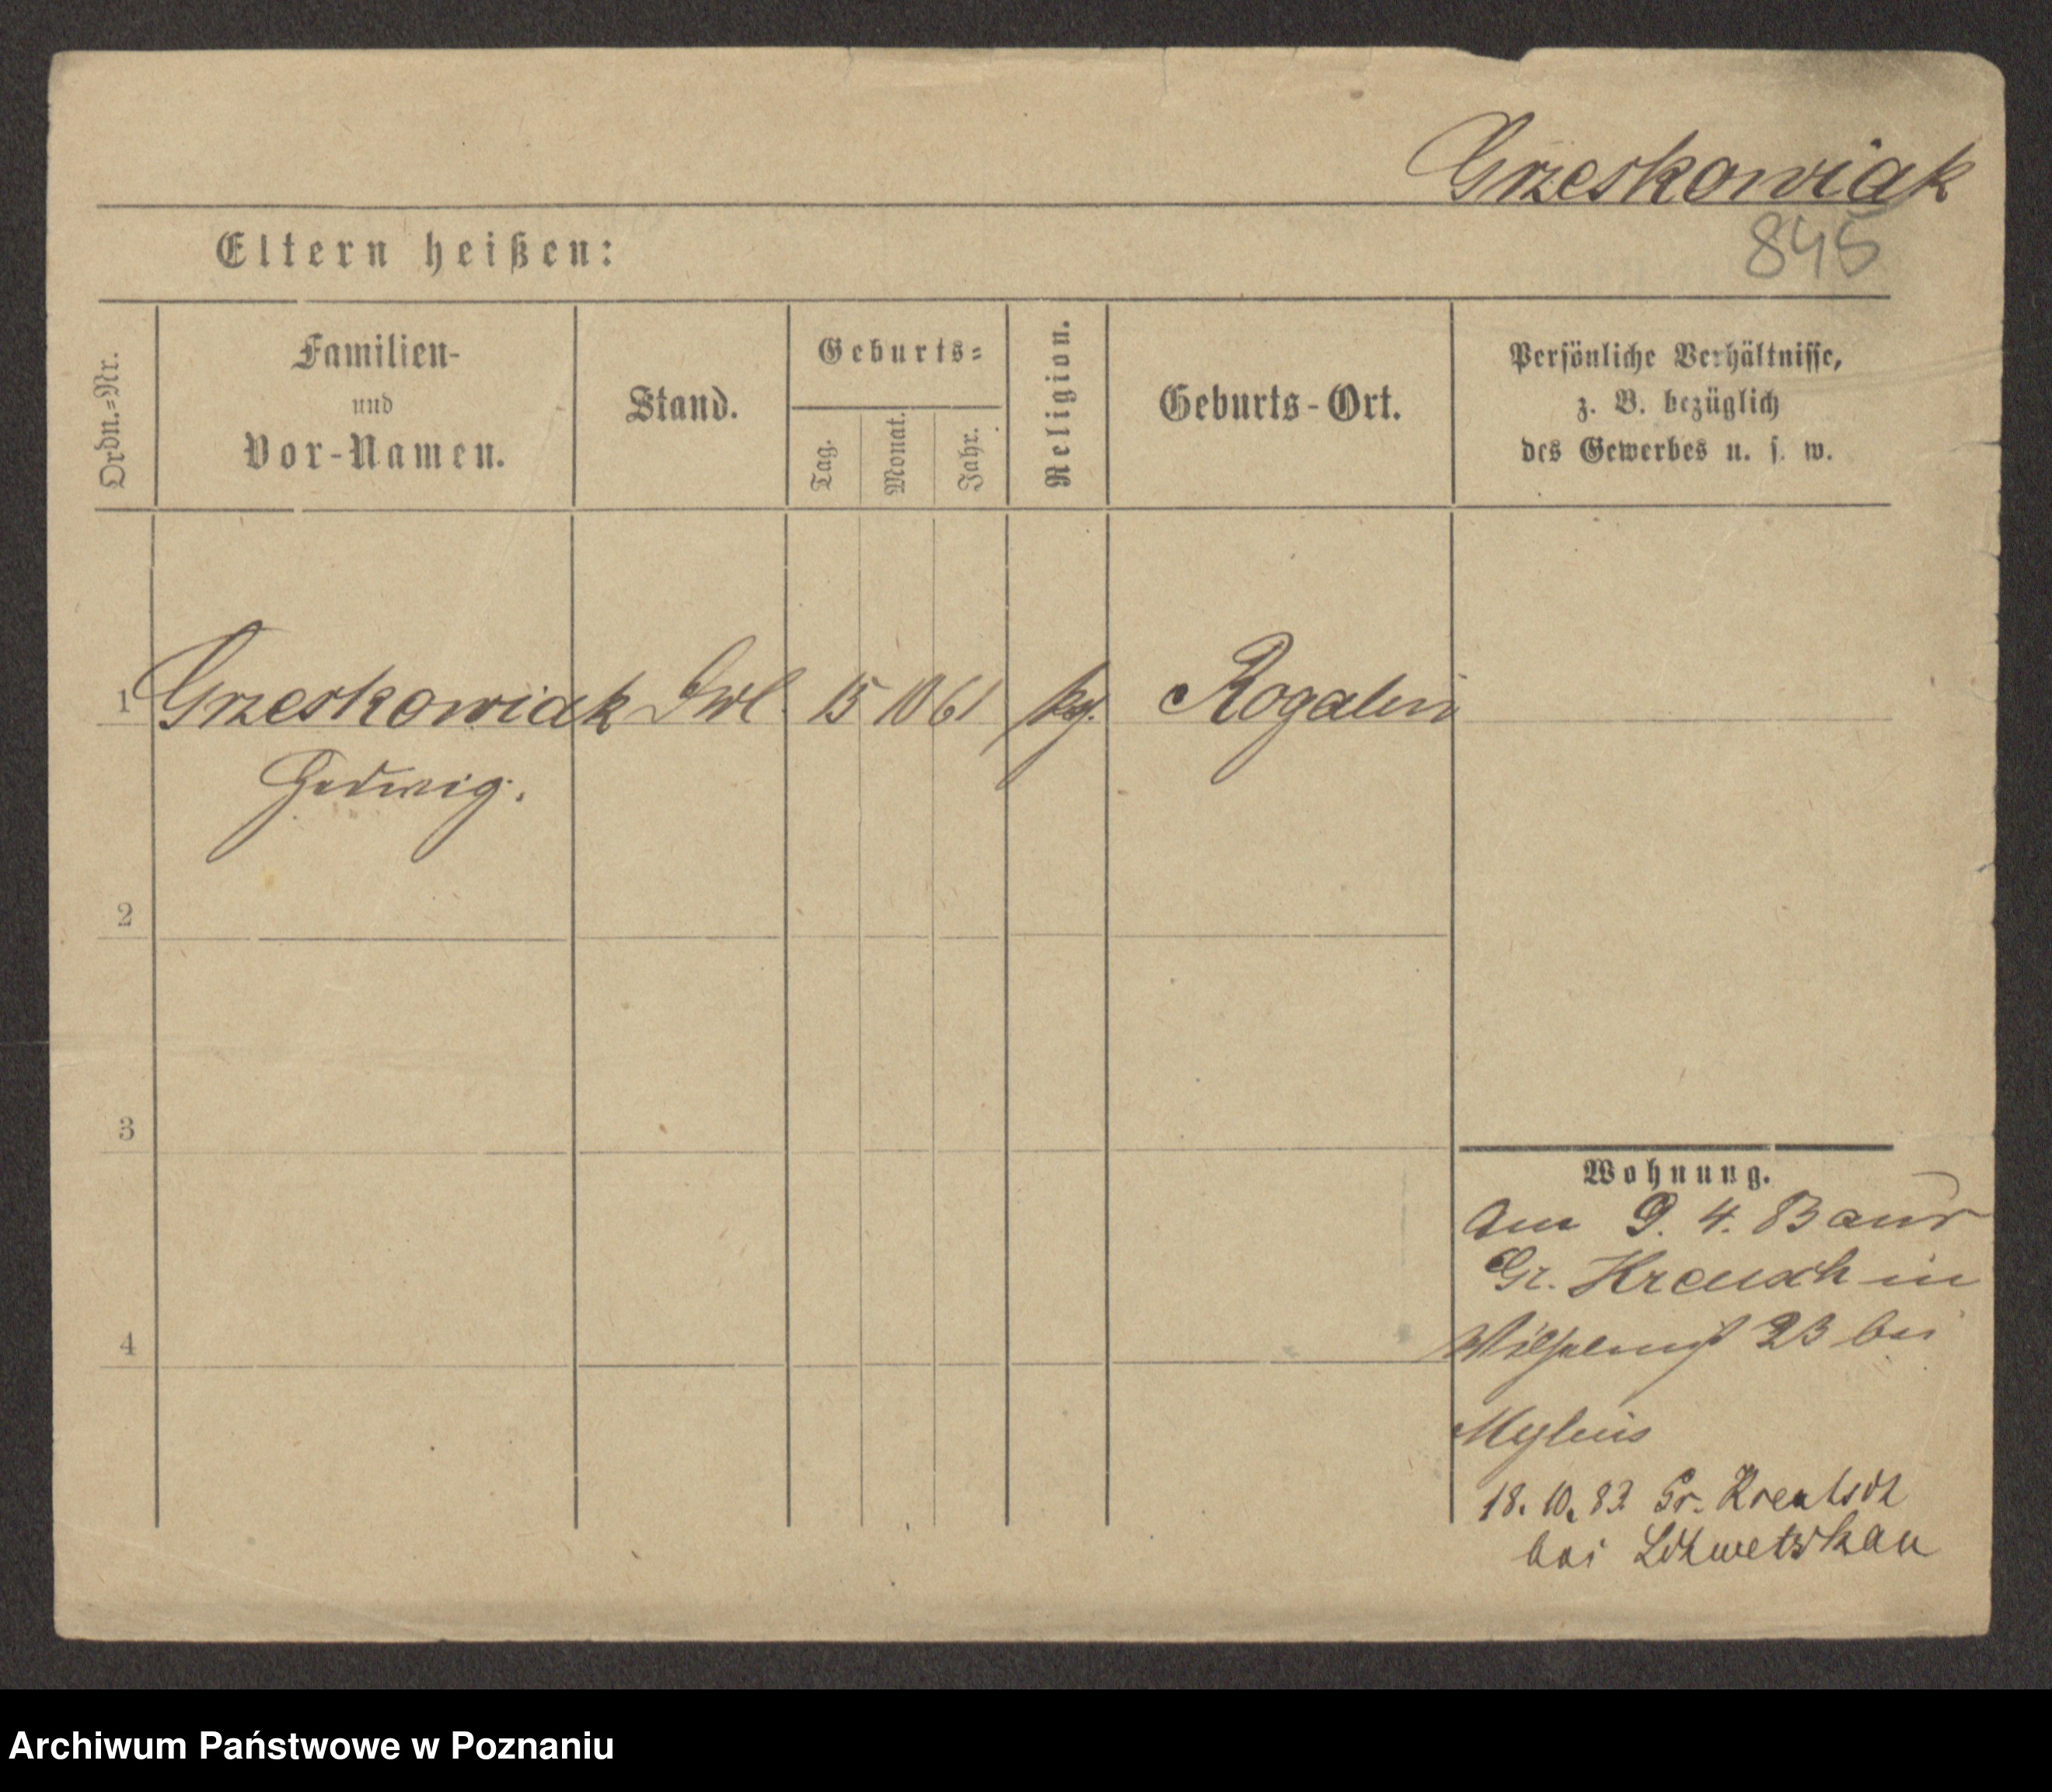 Grzeskowiak
845
Eltern heißen:
Ordn.-Nr.
Familien-
und
Vor-Namen.
Stand.
Geburts-
Tag.
Monat.
Jahr.
Religion.
Geburts-Ort.
Persönliche Verhältnisse,
z. B. bezüglich
des Gewerbes u. s. w.
1 Grzeskowiak 15 10 61 Rogalin
Hedwig.
2
3
4
Wohnung.
Am 9. 4.
Gr. in
23 bei
Mylius
18. 10. 83 Gr. Kreutsch
bei Schwetzkau
Archiwum Państwowe w Poznaniu